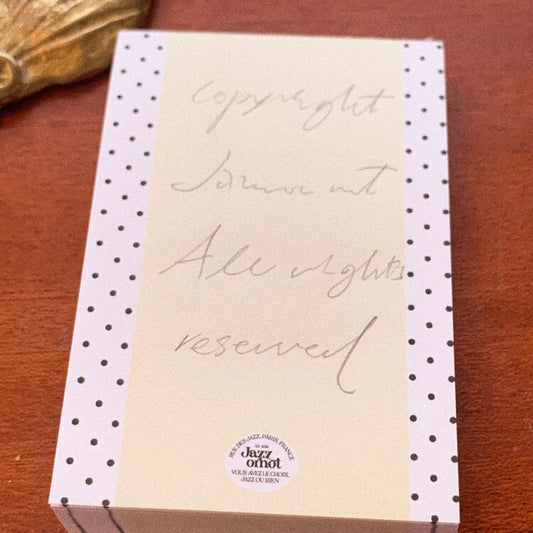 Copyright
All rights
reserved
RUE DES JAZZ, PARIS, FRANCE
Jazz
ornot
VOUS AVEZ LE CHOIX,
JAZZ OU RIEN